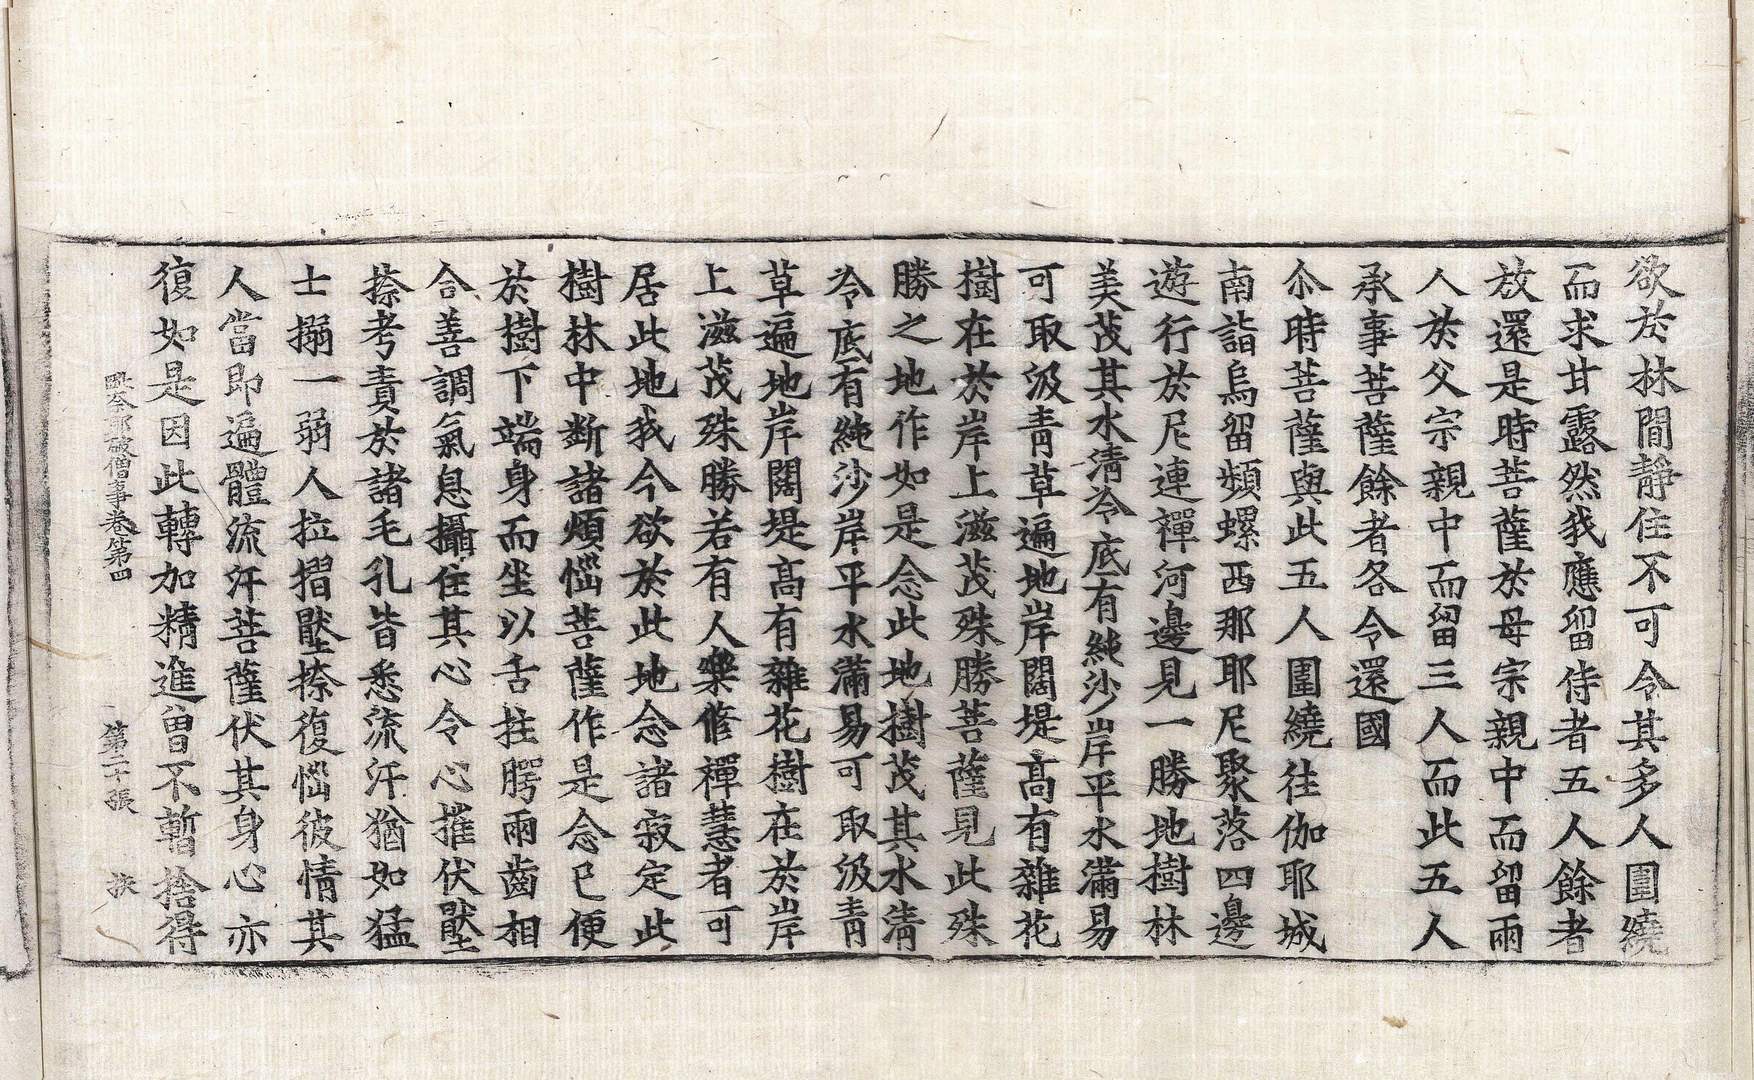 欲於林間靜住不可令其多人圍繞
而求甘露然我應留侍者五人餘者
放還是時菩薩於母宗親中而留兩
人於父宗親中而留三人而此五人
承事菩薩餘者各令還國
尒時菩薩與此五人圍繞往伽耶城
南詣烏留頻螺西那耶尼聚落四邊
遊行於尼連禪河邊見一勝地樹林
美茂其水清冷底有純沙岸平水滿易
可取汲青草遍地岸闊堤高有雜花
樹在於岸上滋茂殊勝菩薩見此殊
勝之地作如是念此地樹茂其水清
冷底有純沙岸平水滿易可取汲青
草遍地岸闊堤高有雜花樹在於岸
上滋茂殊勝若有人樂修禪慧者可
居此地我今欲於此地念諸寂定此
樹林中斷諸煩惱菩薩作是念已便
於樹下端身而坐以舌拄腭兩齒相
合善調氣息攝住其心令心摧伏壓
捺考責於諸毛孔皆悉流汗猶如猛
士搦一弱人拉摺壓捺復惱彼情其
人當即遍體流汗菩薩伏其身心亦
復如是因此轉加精進曾不暫捨得
毗奈耶破僧事卷第四　第二十張